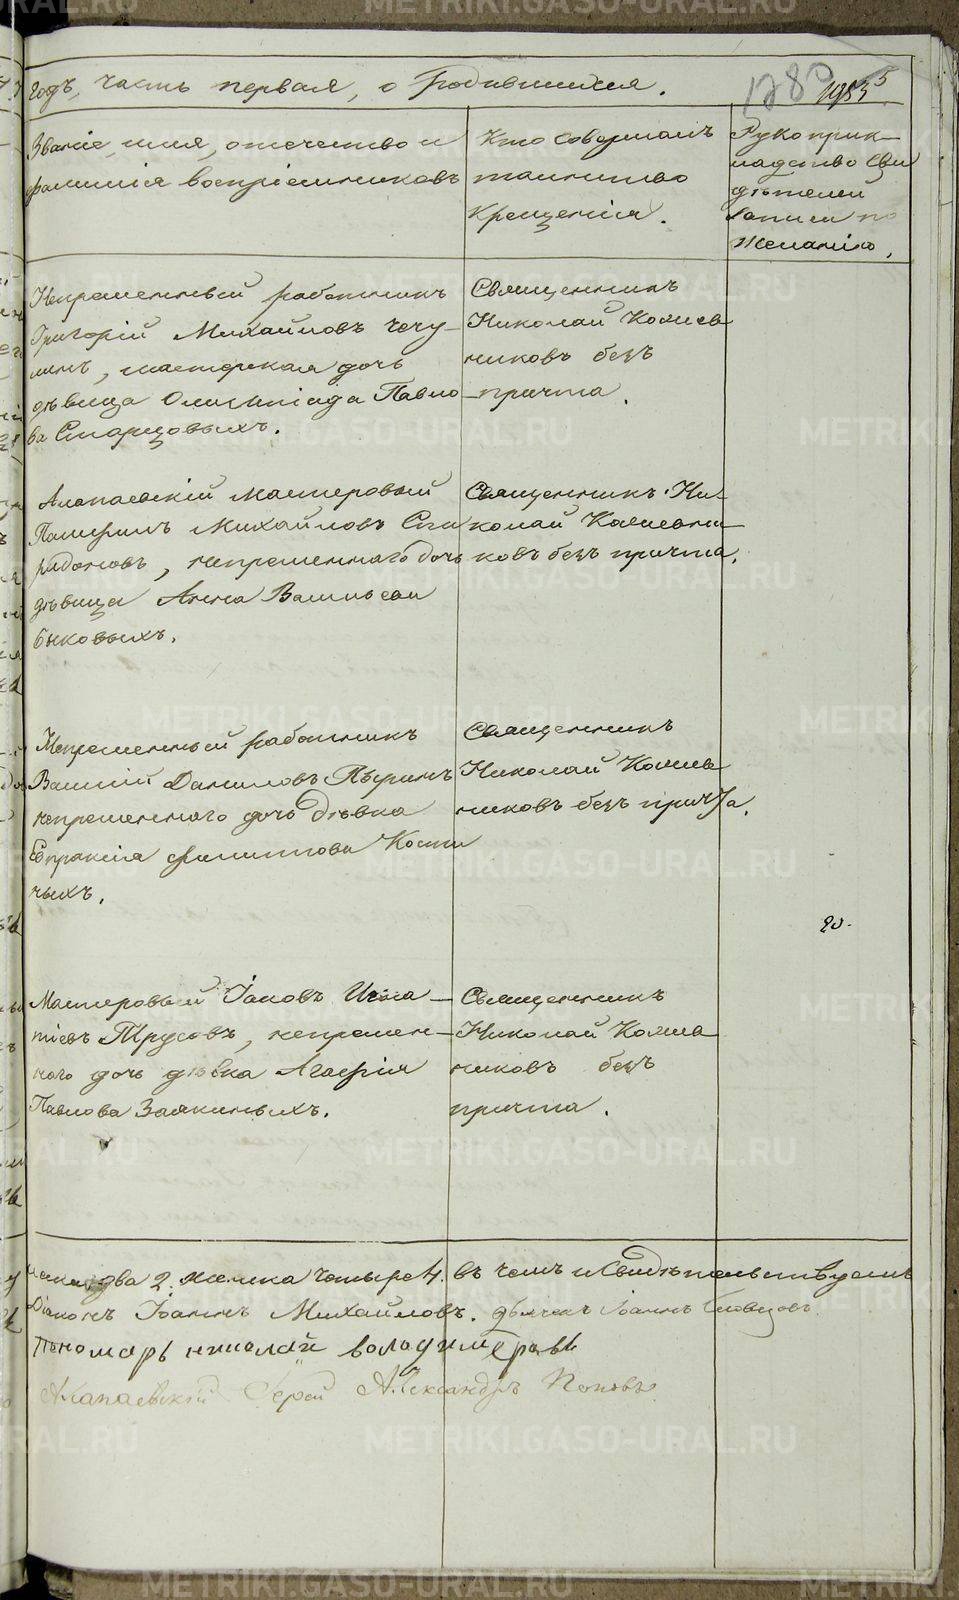 годъ, часть первая, о Родившихся.
Званіе, имя, отечество и
фамилія воспріемниковъ
Кто совершалъ
таинство
Крещенія.
Рукоприк-
ладство сви
дѣтелей
записи по
желанію.
Непременный работникъ
Григорій Михайловъ Чечу-
линъ, мастерская дочь
дѣвица Олимпіада Павло-
ва Старцовыхъ.
Священникъ
Николай Кожев
никовъ безъ
причта.
Алапаевскій мастеровый
Михайловъ Спи
ридоновъ, непременнаго дочь
дѣвица Анна Васильева
Быковыхъ.
Священникъ Ни-
колай Кожевни-
ковъ безъ причта.
Непременный работникъ
Василій Даниловъ
непременнаго дочь Дѣвка
Евпраксія Филиппова Кости
ныхъ.
Священникъ
Николай Кожев
никовъ безъ причта.
Мастеровый Іаковъ Игна-
тіевъ Трусовъ, непремен-
наго дочь дѣвка Агафія
Павлова Заякиныхъ.
Священникъ
Николай Кожев
никовъ безъ
причта.
два 2. женска четыре 4. въ чемъ и Свидѣтельствуемъ
Діаконъ Іоаннъ Михайловъ. Дьячекъ Іоаннъ
Пономарь Николай Володимеровъ
Алапаевскій Іерей Александръ Поповъ
METRIKI.GASO-URAL.RU